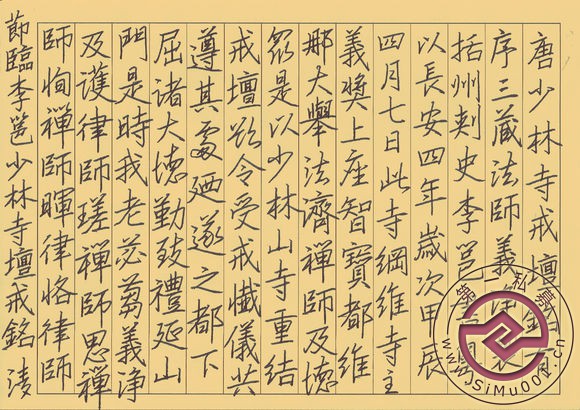 唐少林寺戒壇銘一
序三藏法師義淨
括州刺史李邕
以長安四年歲次甲辰
四月七日此寺綱維寺主
義獎上座智寶都維
那大舉法濟禪師及德
眾是以少林山寺重結
戒壇欲令受戒懺儀共
遵其處廼遂之都下
屈諸大德勤致禮延山
門是時我老苾蒭義淨
及護律師瑳禪師思禪
師恂禪師暉律恪律師
節臨李邕少林寺壇戒銘
私募
www.simu001.cn